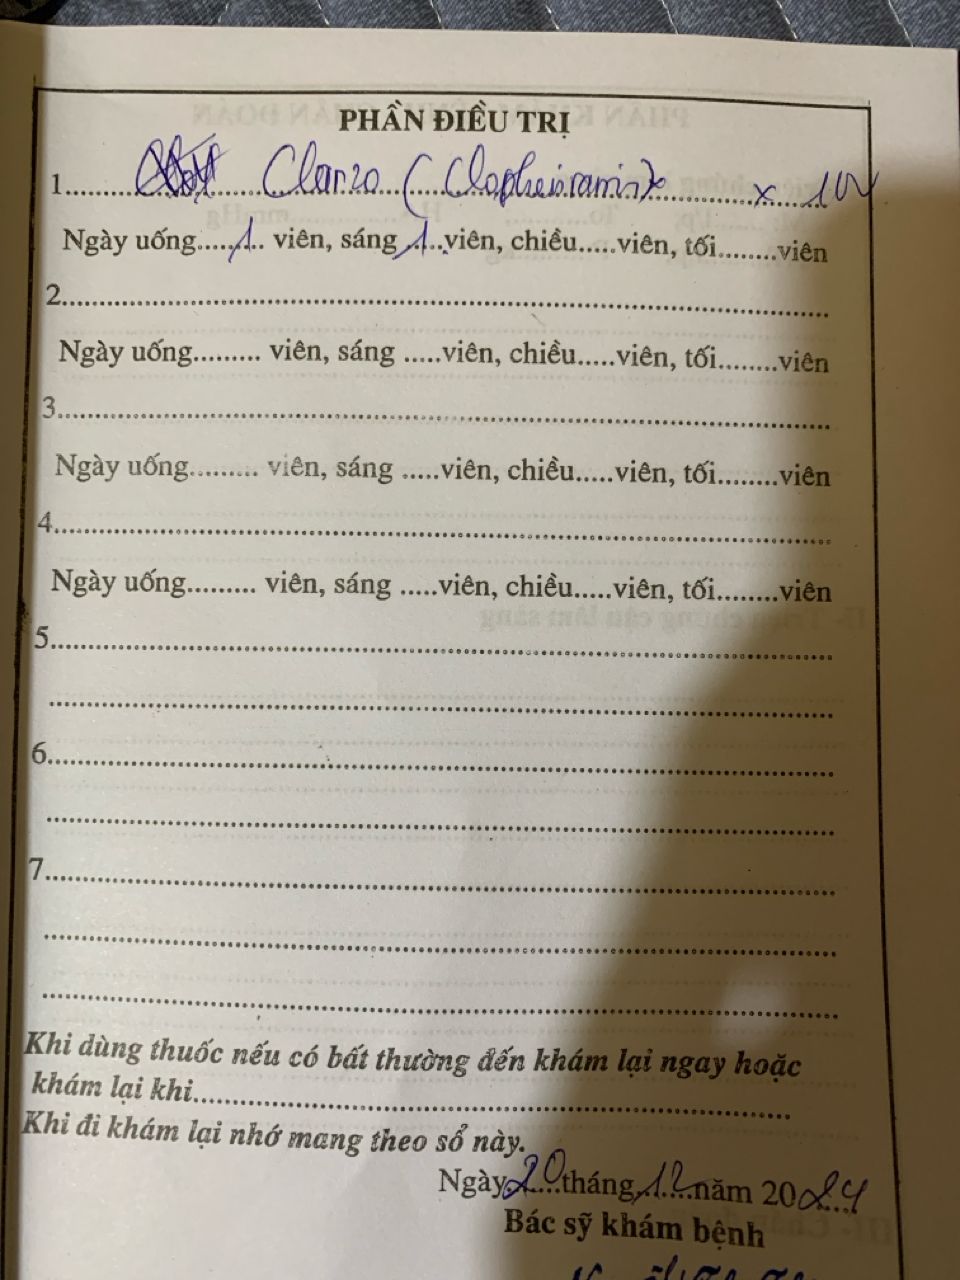 PHẦN ĐIỀU TRỊ
1. Clanzo (Clopheniramin) x 10v
Ngày uống.....1.. viên, sáng 1..viên, chiều.....viên, tối........viên
2.
Ngày uống......... viên, sáng .....viên, chiều.....viên, tối........viên
3.
Ngày uống......... viên, sáng .....viên, chiều.....viên, tối........viên
4.
Ngày uống......... viên, sáng .....viên, chiều.....viên, tối........viên
5.
6.
7.
Khi dùng thuốc nếu có bất thường đến khám lại ngay hoặc
khám lại khi
Khi đi khám lại nhớ mang theo sổ này.
Ngày 20 tháng 12 năm 2024
Bác sỹ khám bệnh